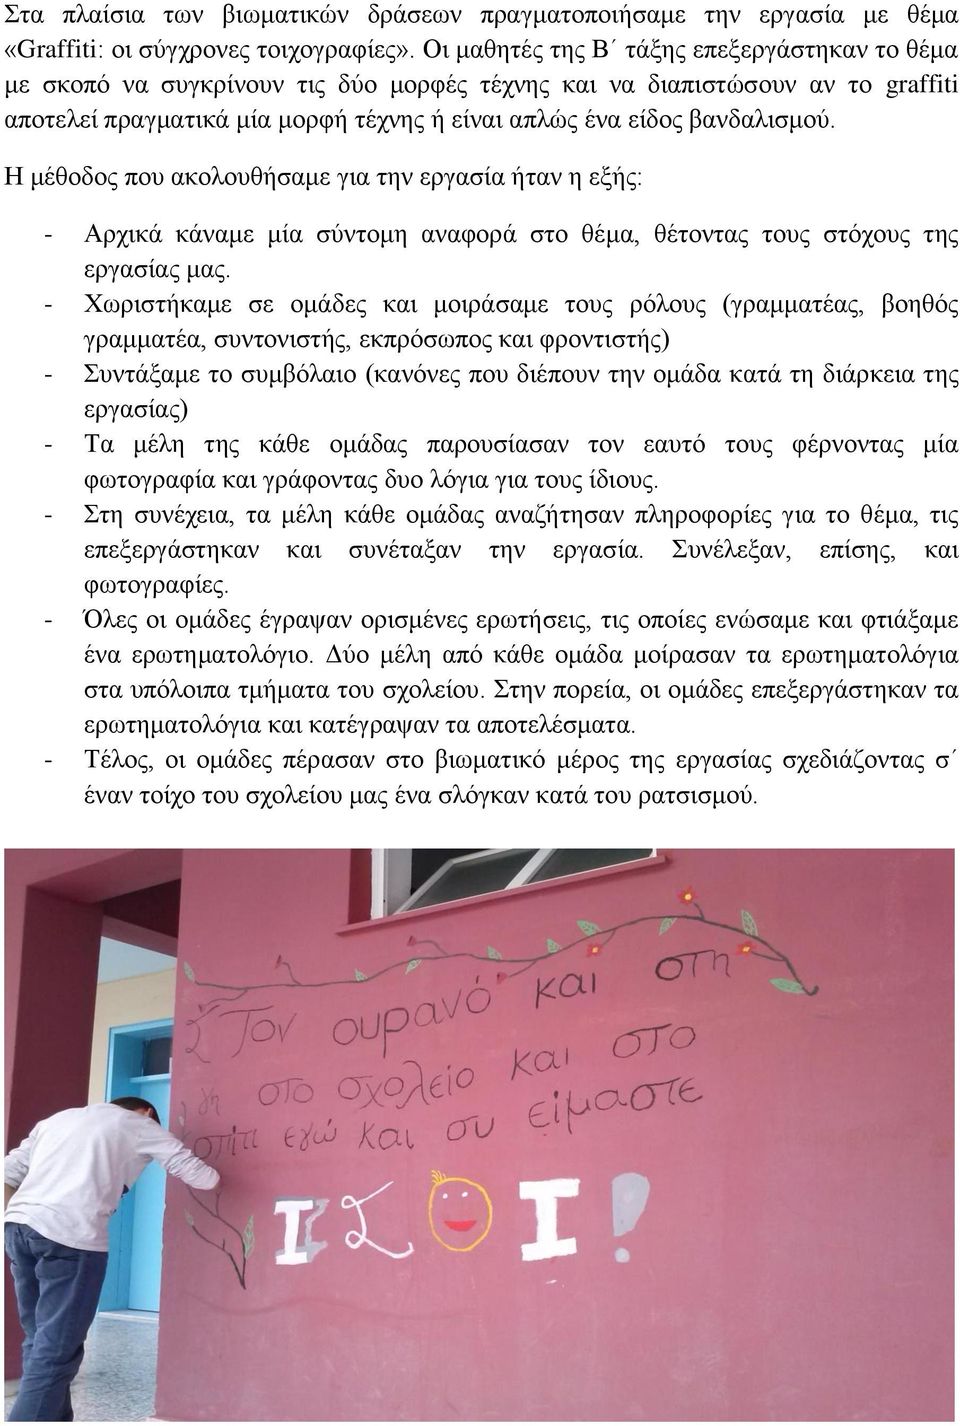 Στα πλαίσια των βιωματικών δράσεων πραγματοποιήσαμε την εργασία με θέμα
«Graffiti: οι σύγχρονες τοιχογραφίες». Οι μαθητές της Β΄ τάξης επεξεργάστηκαν το θέμα
με σκοπό να συγκρίνουν τις δύο μορφές τέχνης και να διαπιστώσουν αν το graffiti
αποτελεί πραγματικά μία μορφή τέχνης ή είναι απλώς ένα είδος βανδαλισμού.
Η μέθοδος που ακολουθήσαμε για την εργασία ήταν η εξής:
- Αρχικά κάναμε μία σύντομη αναφορά στο θέμα, θέτοντας τους στόχους της
εργασίας μας.
- Χωριστήκαμε σε ομάδες και μοιράσαμε τους ρόλους (γραμματέας, βοηθός
γραμματέα, συντονιστής, εκπρόσωπος και φροντιστής)
- Συντάξαμε το συμβόλαιο (κανόνες που διέπουν την ομάδα κατά τη διάρκεια της
εργασίας)
- Τα μέλη της κάθε ομάδας παρουσίασαν τον εαυτό τους φέρνοντας μία
φωτογραφία και γράφοντας δυο λόγια για τους ίδιους.
- Στη συνέχεια, τα μέλη κάθε ομάδας αναζήτησαν πληροφορίες για το θέμα, τις
επεξεργάστηκαν και συνέταξαν την εργασία. Συνέλεξαν, επίσης, και
φωτογραφίες.
- Όλες οι ομάδες έγραψαν ορισμένες ερωτήσεις, τις οποίες ενώσαμε και φτιάξαμε
ένα ερωτηματολόγιο. Δύο μέλη από κάθε ομάδα μοίρασαν τα ερωτηματολόγια
στα υπόλοιπα τμήματα του σχολείου. Στην πορεία, οι ομάδες επεξεργάστηκαν τα
ερωτηματολόγια και κατέγραψαν τα αποτελέσματα.
- Τέλος, οι ομάδες πέρασαν στο βιωματικό μέρος της εργασίας σχεδιάζοντας σ΄
έναν τοίχο του σχολείου μας ένα σλόγκαν κατά του ρατσισμού.
Στον ουρανό και στη
γη στο σχολείο και στο
σπίτι εγώ και συ είμαστε
ΙΣΟΙ!